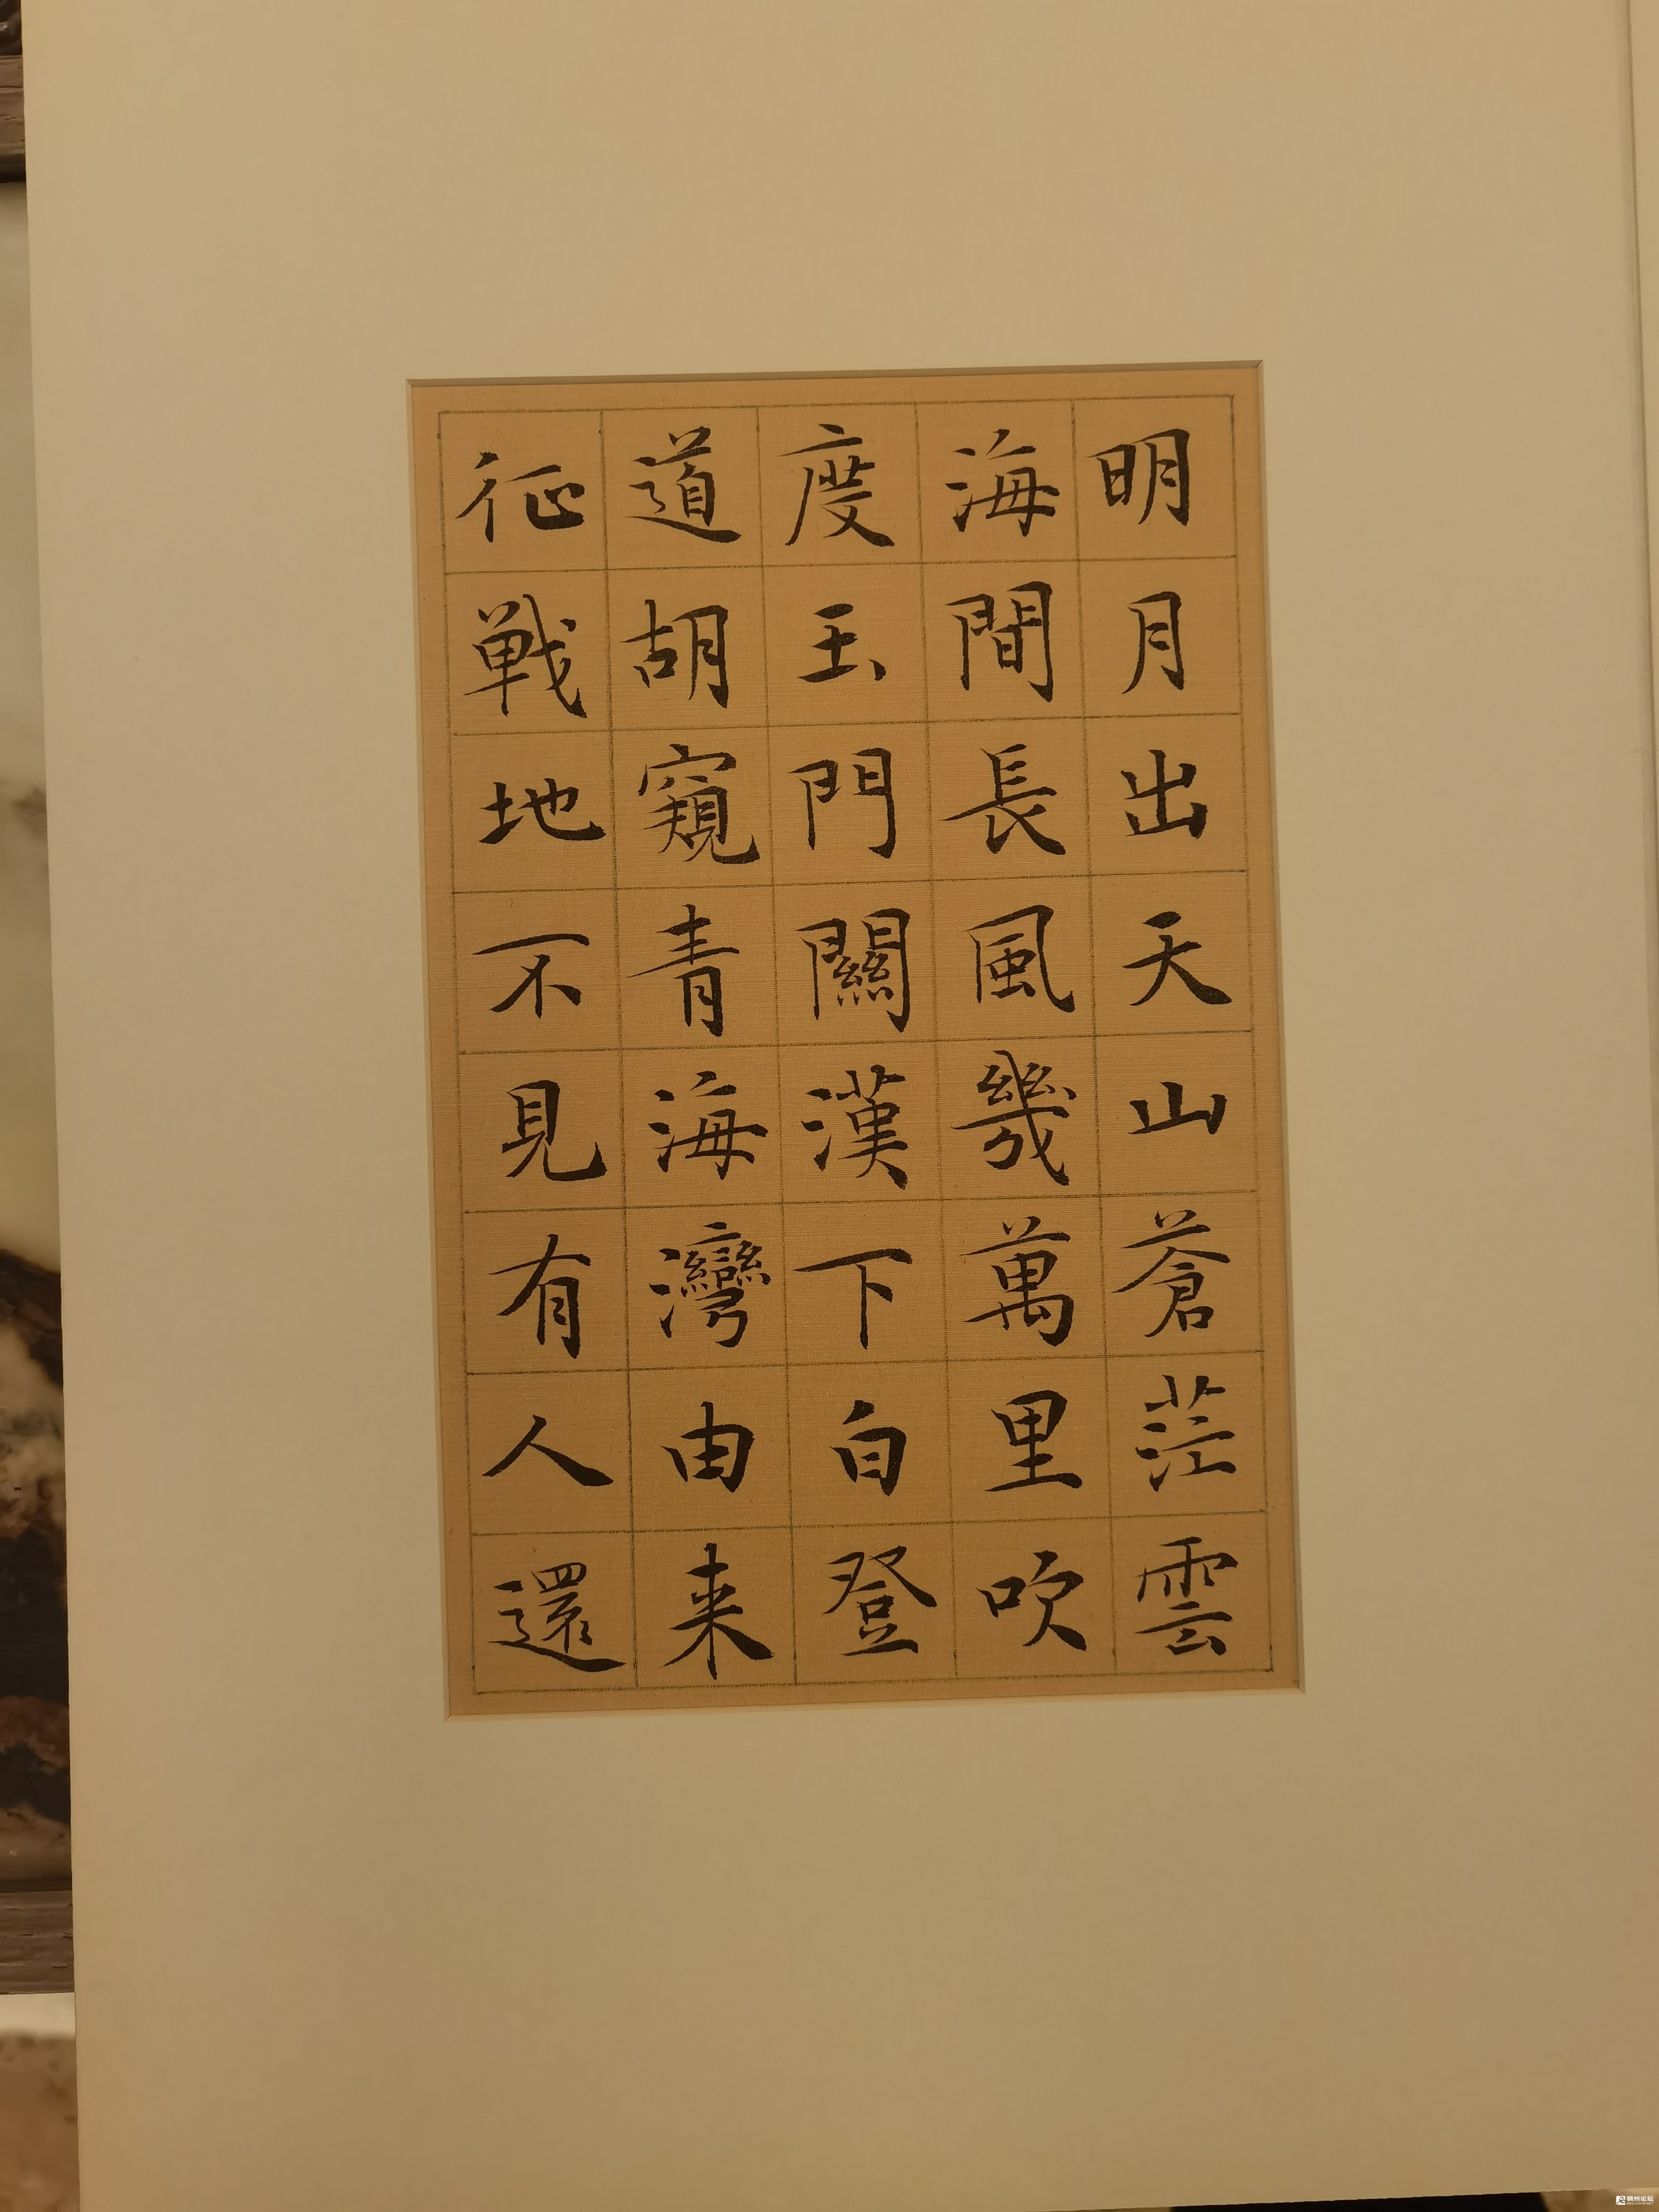 明月出天山蒼茫雲
海間長風幾萬里吹
度玉門關漢下白登
道胡窺青海灣由来
征戰地不見有人還